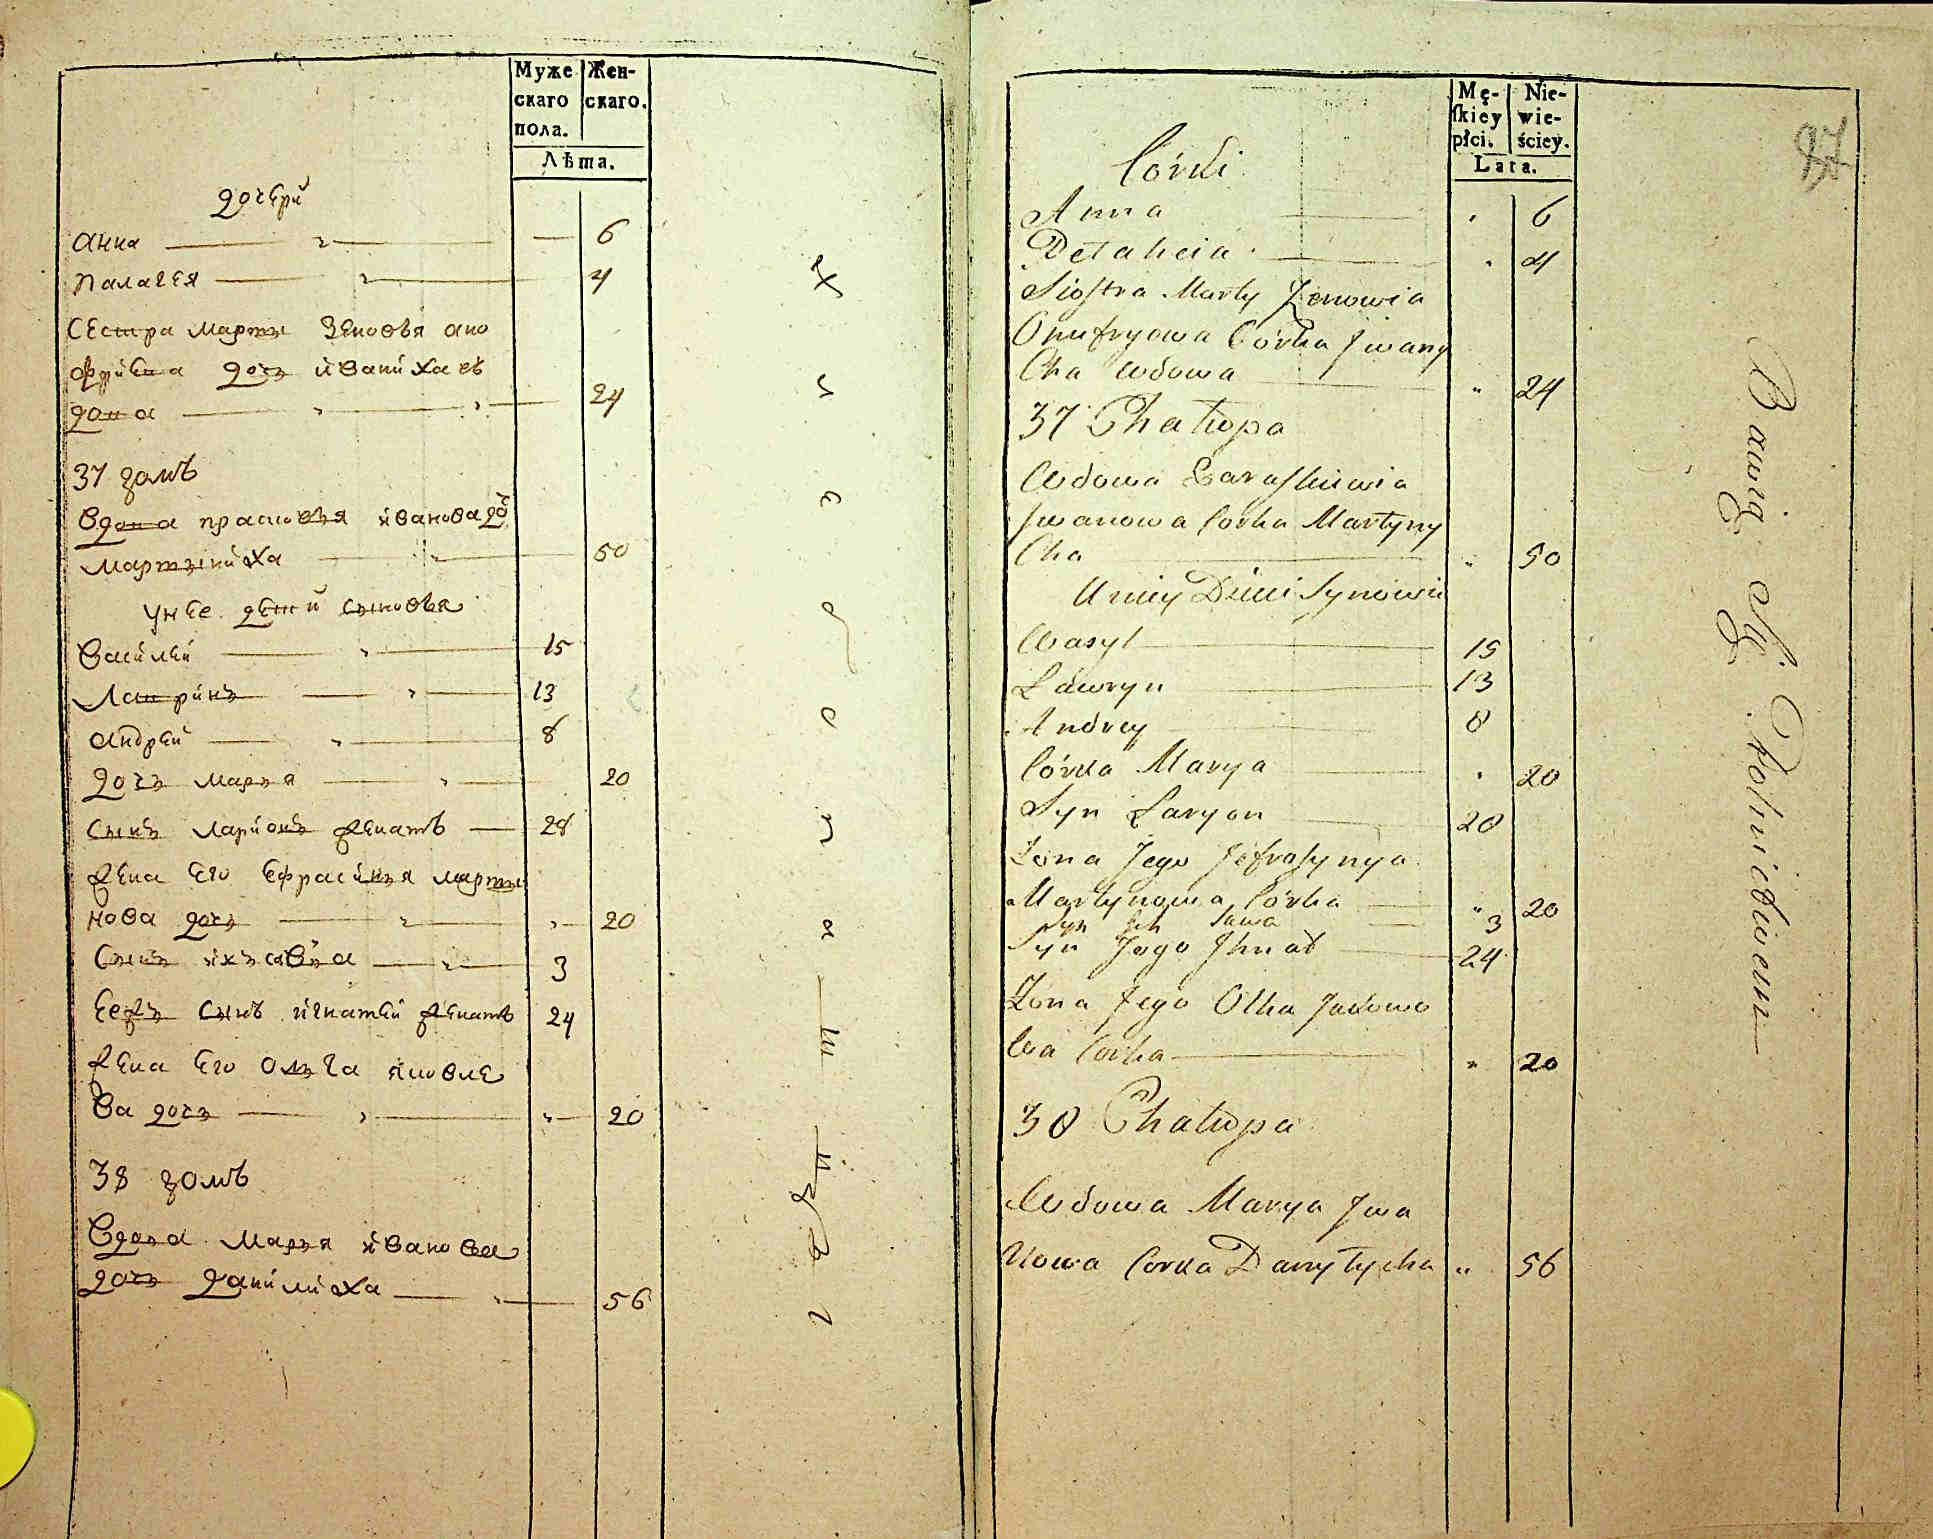 Муже
скаго
пола.
Жен-
скаго.
Лѣта.
дочери
анна 6
палагея 4
сестра марты зеновья ано
фриева дочь иваниха въ
дова 24
37 домъ
вдова прасковья иванова до
мартыниха 50
у нее дети сыновья
василей 15
лавринъ 13
андрей 8
дочь марья 20
сынъ ларионъ женатъ 28
жена его ефрасинья марты
нова дочь 20
сынъ ихъ савва 3
ее жъ сынъ игнатей женатъ 24
жена его олга яковле
ва дочь 20
38 домъ
вдова марья иванова
дочь данилиха 56
Mę-
skiey
płci.
Nie-
wie-
ściey.
Lata.
37
Córki
Anna 6
Pełaheia 4
Siostra Marty Zenowia
Onufryowa Córka Jwany
Cha Wdowa 24
37 Chałupa
Wdowa Paraskiewia
Jwanowa Corka Martyny
Cha 50
U niey Dzieci Synowie
Wasyl 15
Ławryn 13
Andrey 8
Córka Marya 20
Syn Laryon 28
Żona Jego Jefrosynya
Martynowa Córka 20
Syn Ich Sawa 3
Syn Jego Jhnat 24
Żona Jego Olha Jakowo
wa Corka 20
38 Chałupa
Wdowa Marya Jwa
Nowa Corka Danyłycha 56